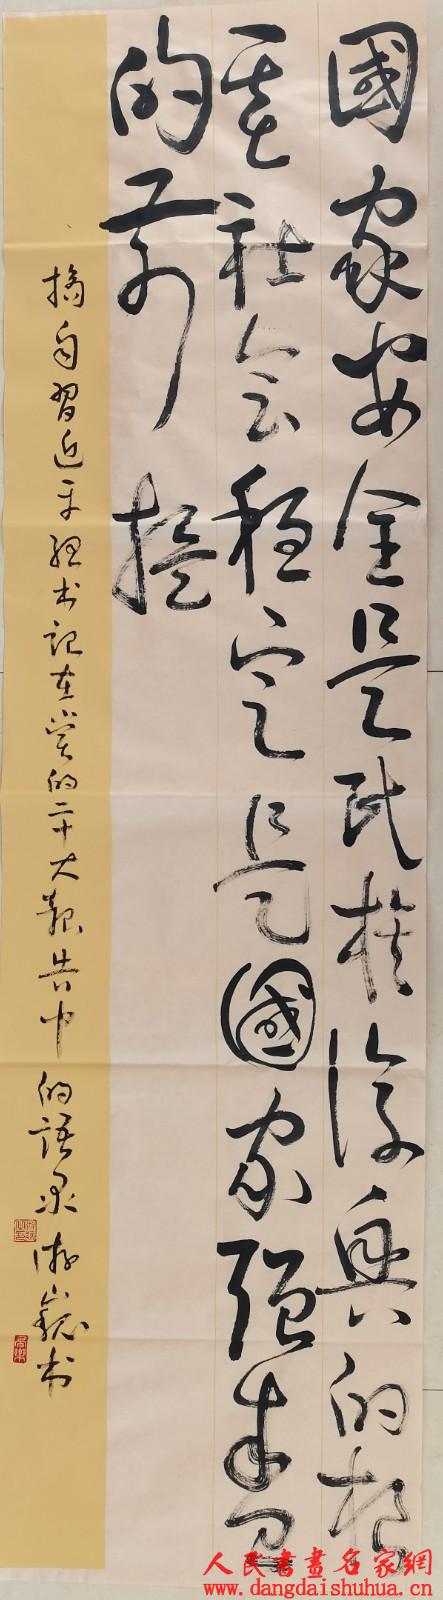 國家安全是民族復興的根
基社會穩定是國家強盛
的前提
摘自習近平總书記在党的二十大報告中的語录
书
人民書畫名家網
www.dangdaishuhua.cn